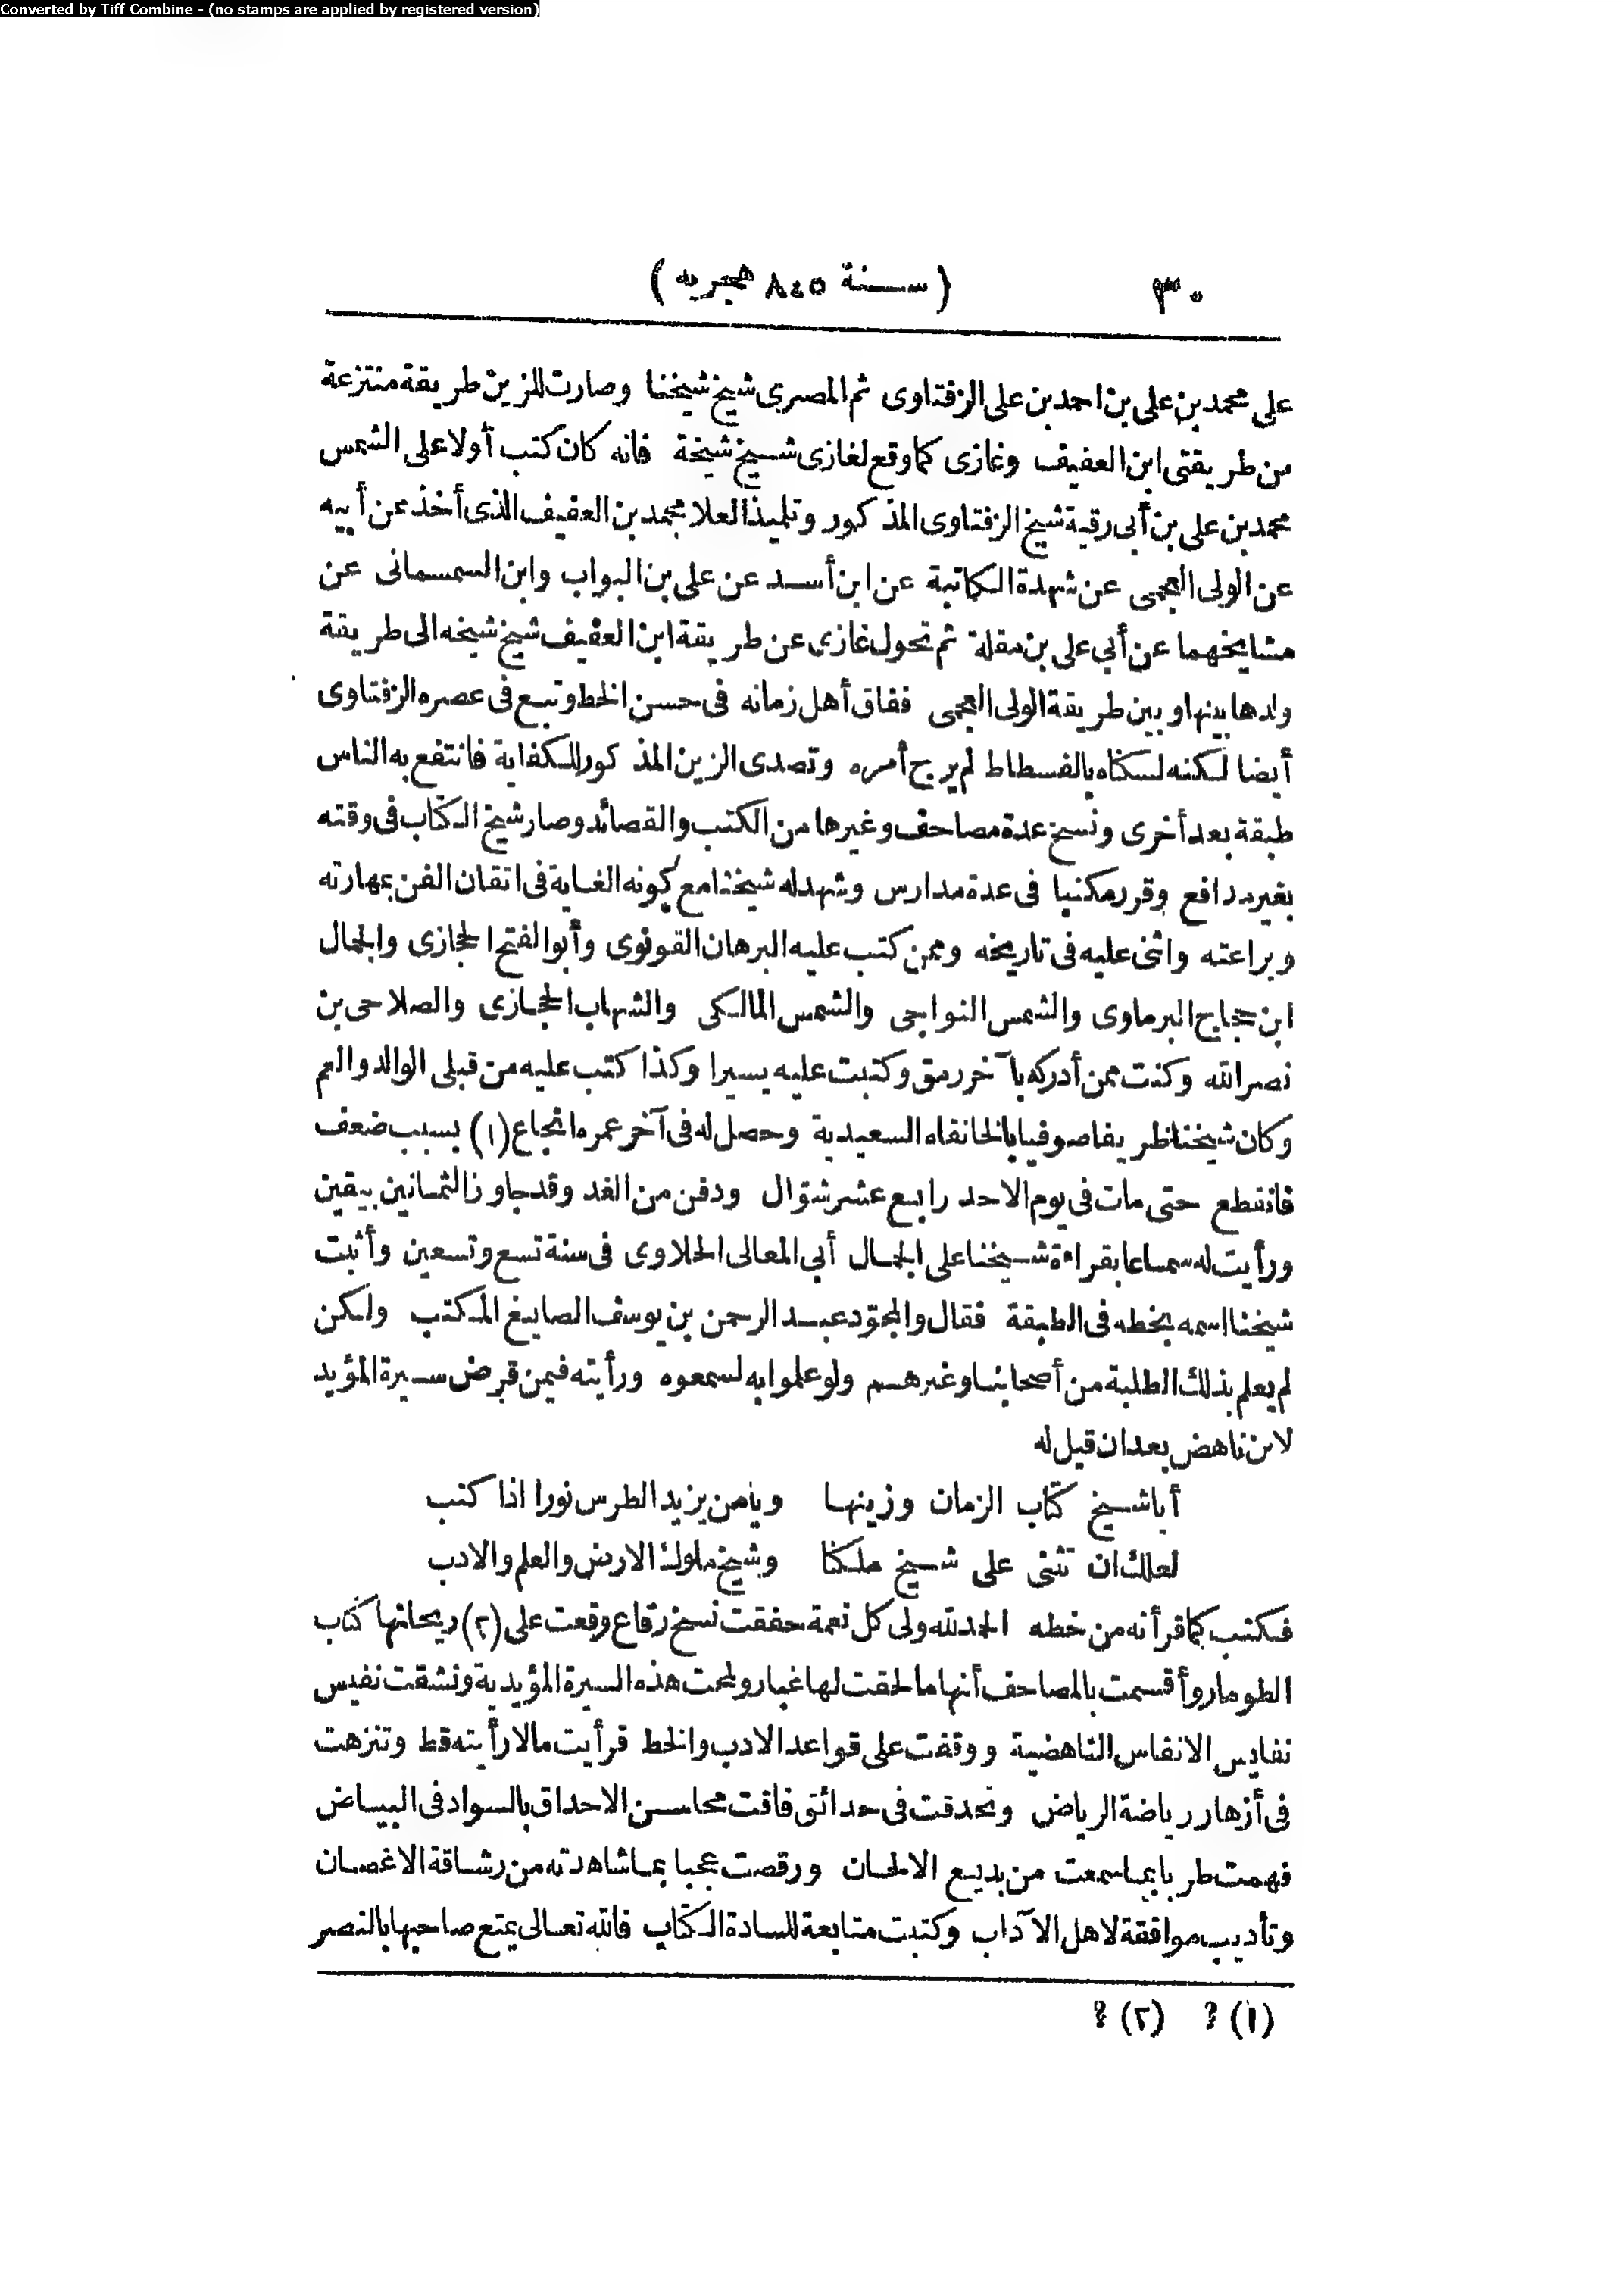 Converted by Tiff Combine - (no stamps are applied by registered version)
٣٠ (سنة ٨٤٥ هجريه)
على محمد بن على بن احمد بن على الزفتاوى ثم المصرى شيخ شيخنا وصارت للزين طريقة منتزعة
من طريقتى ابن العفيف وغازى كما وقع لغازى شيخ شيخة فانه كان كتب أولا على الشمس
محمد بن على بن أبى رقية شيخ الزفتاوى المذكور وتلميذ العلا محمد بن العفيف الذى أخذ عن أبيه
عن الولى العجمى عن شهدة الكاتبة عن ابن أسد عن على بن البواب وابن السمسمانى عن
مشايخهما عن أبي على بن مقلة ثم تحول غازى عن طريقة ابن العفيف شيخ شيخه الى طريقة
ولدها بينها وبين طريقة الولى العجمى ففاق أهل زمانه فى حسن الخط وتبع فى عصره الزفتاوى
أيضا لكنه لسكناه بالفسطاط لم يرج أمره وتصدى الزين المذكور للكفاية فانتفع به الناس
طبقة بعد أخرى ونسخ عدة مصاحف وغيرها من الكتب والقصائد وصار شيخ الكتاب فى وقته
بغير مدافع وقرر مكتبا فى عدة مدارس وشهد له شيخنا مع كونه الغاية فى اتقان الفن بمهارته
وبراعته واثنى عليه فى تاريخه وممن كتب عليه البرهان القونوى وأبو الفتح الحجازى والجمال
ابن حجاج البرماوى والشمس النواجى والشمس المالكى والشهاب الحجازى والصلاحى بن
نصر الله وكنت ممن أدركه بآخر رمق وكتبت عليه يسيرا وكذا كتب عليه من قبلى الوالد والعم
وكان شيخنا ظريفا صوفيا بالخانقاه السعيدية وحصل له فى آخر عمره انجاع (١) بسبب ضعف
فانقطع حتى مات فى يوم الاحد رابع عشر شوال ودفن من الغد وقد جاوز الثمانين بيقين
ورأيت له سماعا بقراءة شيخنا على الجمال أبي المعالى الحلاوى فى سنة تسع وتسعين وأثبت
شيخنا اسمه بخطه فى الطبقة فقال والمجوّد عبد الرحمن بن يوسف الصايغ المكتب ولكن
لم يعلم بذلك الطلبة من أصحابنا وغيرهم ولو علموا به لسمعوه ورأيته فيمن قرض سيرة المؤيد
لابن ناهض بعد ان قيل له
أيا شيخ كتّاب الزمان وزينها ويا من يزيد الطرس نورا اذا كتب
لعلك ان تثنى على شيخ ملكنا وشيخ ملوك الارض والعلم والادب
فكتب كما قرأته من خطه الحمد لله ولى كل نعمة حققت نسخ رقاع وقعت على (٢) ريحانها كتاب
الطومار وأقسمت بالمصاحف أنها ما لحقت لها غبار ولمحت هذه السيرة المؤيدية ونشقت نفيس
نفايس الانفاس الناهضية ووقفت على قواعد الادب والخط قرأيت مالا رأيته قط وتنزهت
فى أزهار رياضة الرياض وتحدقت فى حدائق فاقت محاسن الاحداق بالسواد فى البياض
فهمت طربا بما سمعت من بديع الالحان ورقصت عجبا بما شاهدته من رشاقة الاغصان
وتأديب موافقة لاهل الآداب وكتبت متابعة للسادة الكتاب فالله تعالى يمتع صاحبها بالنصر
(١) ؟ (٢) ؟